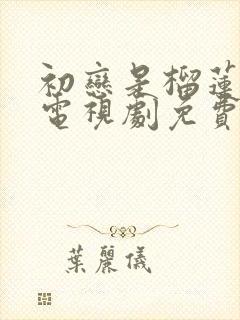 初戀是榴蓮
電視劇免費
葉麗儀